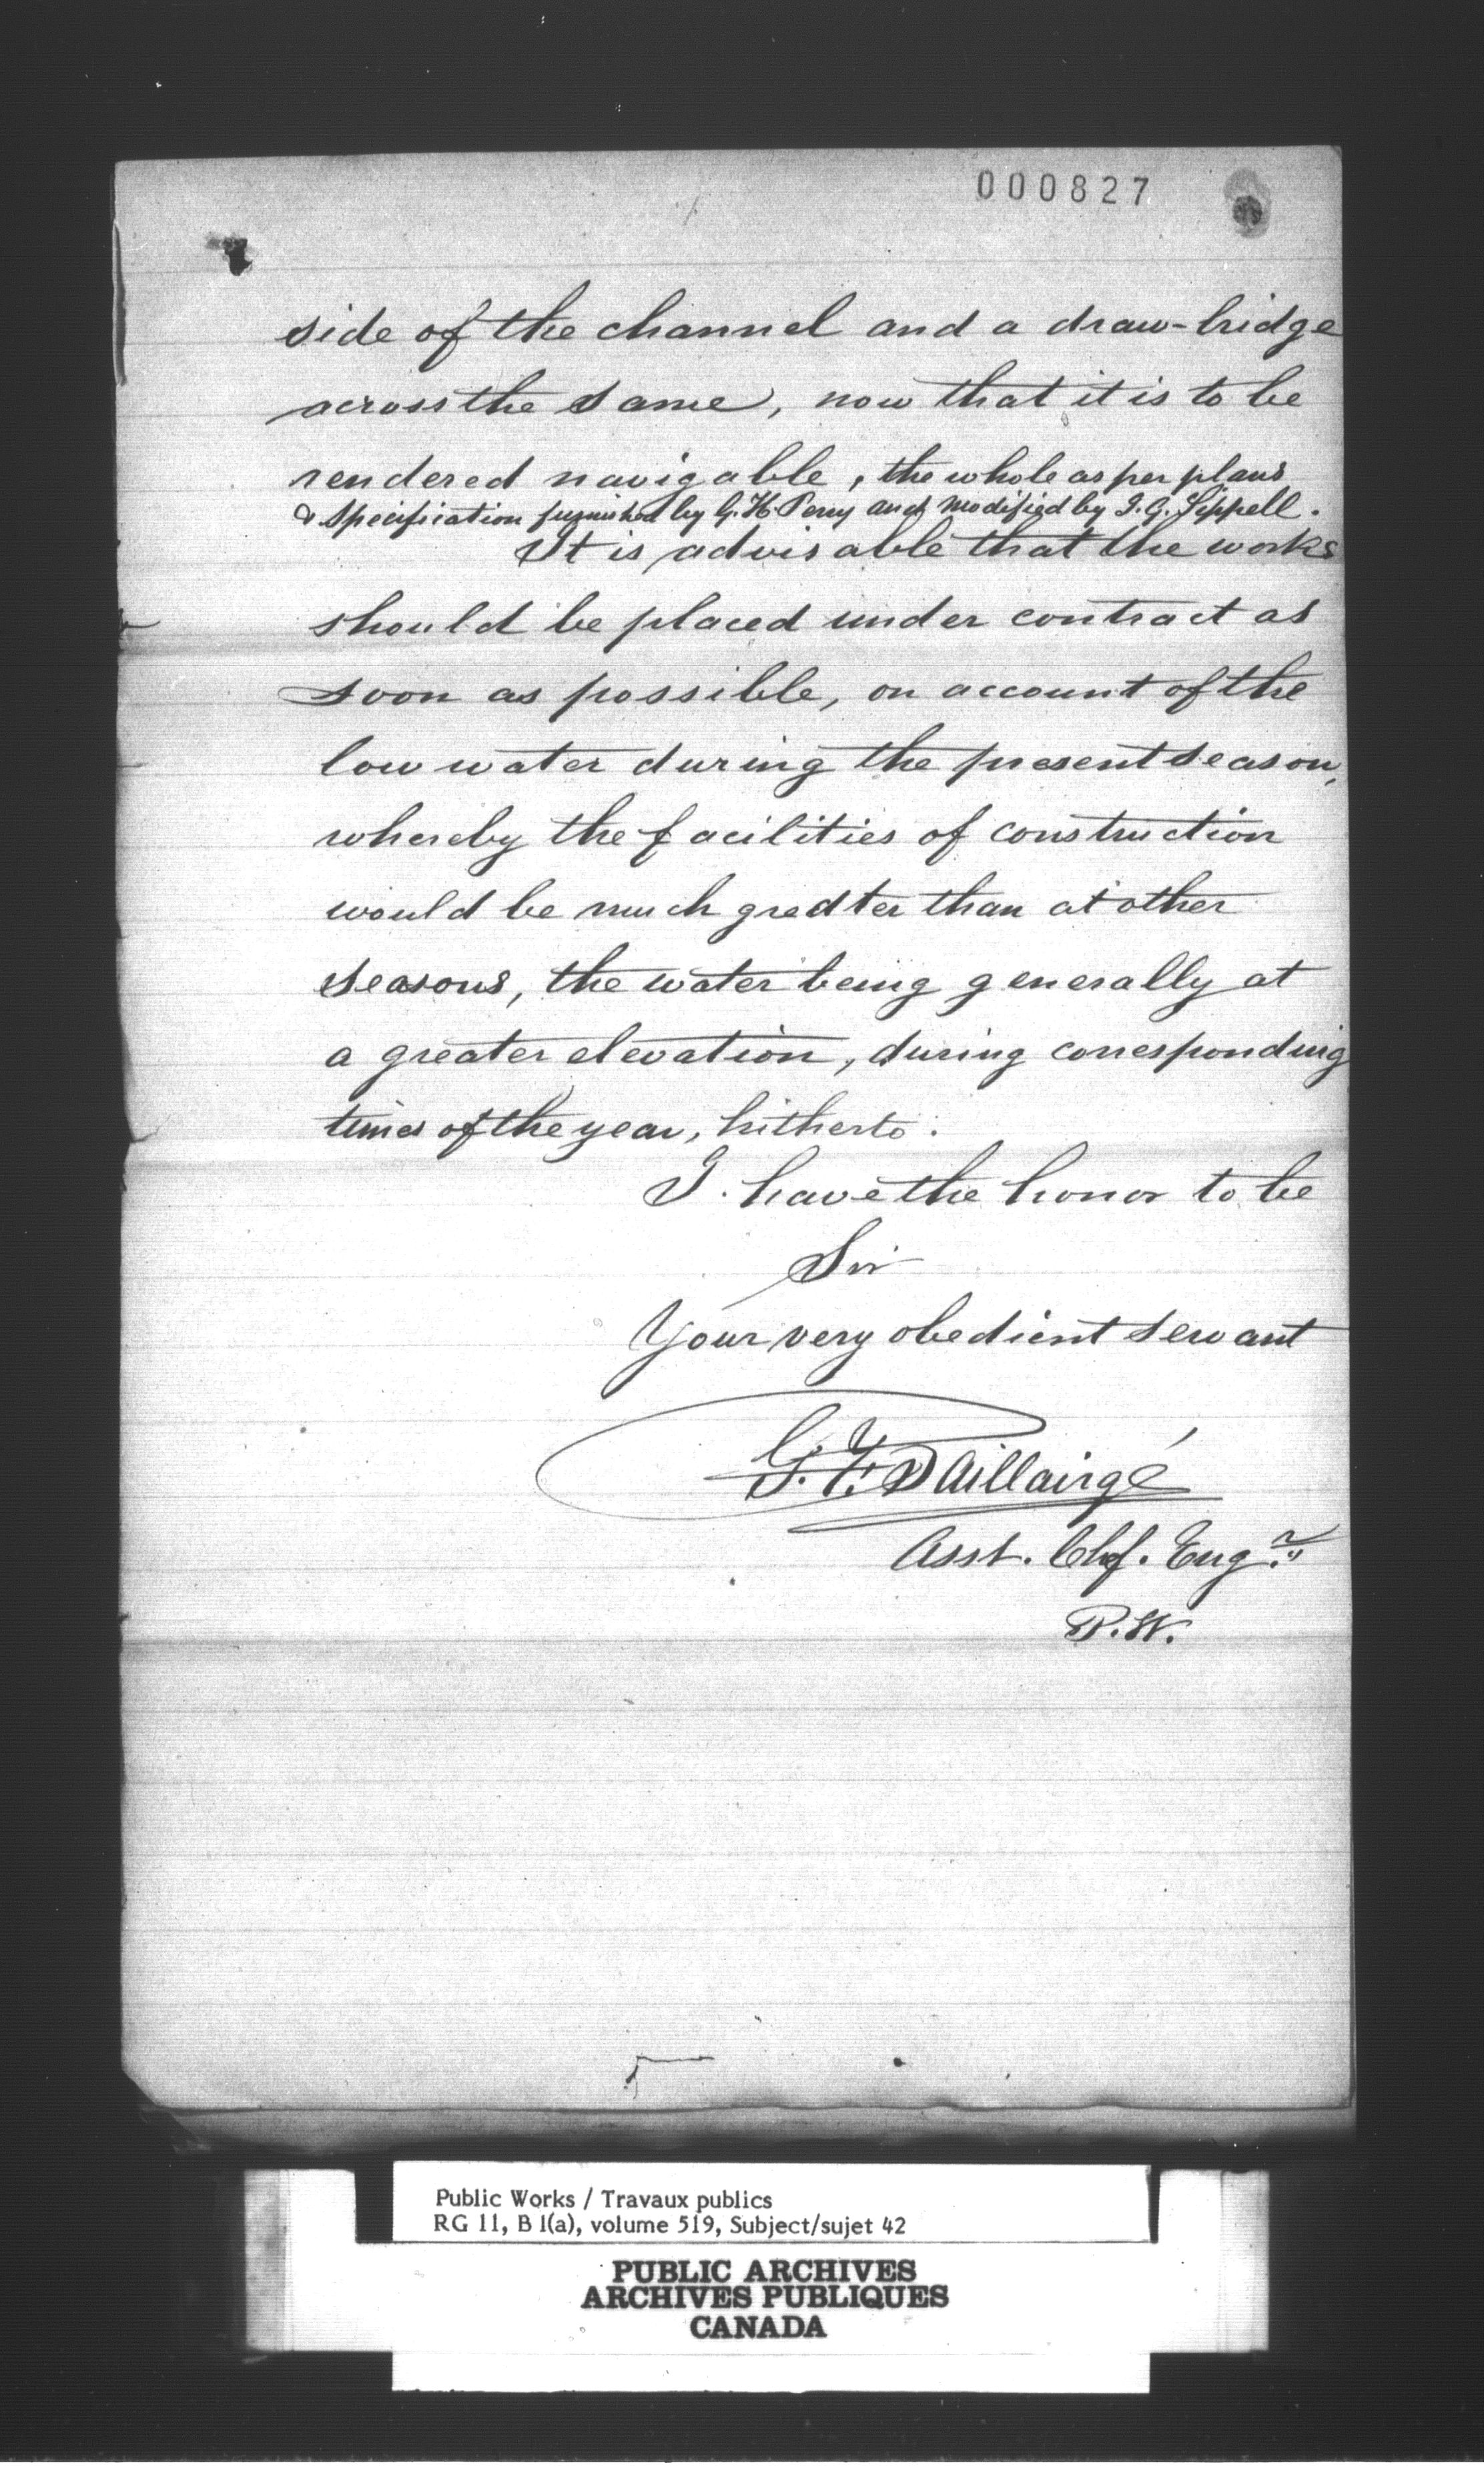 000827
side of the channel and a draw-bridge
across the same, now that it is to be
rendered navigable, the whole as per plans
& Specification furnished by G. H. Perry and modified by J. G. Sippell.
It is advisable that the works
should be placed under contract as
soon as possible, on account of the
low water during the present season,
whereby the facilities of construction
would be much greater than at other
seasons, the water being generally at
a greater elevation, during corresponding
times of the year, hitherto.
I have the honor to be
Sir
Your very obedient servant
G. F. Baillairgé
Asst. Chf. Engr.
P.W.
Public Works / Travaux publics
RG 11, B 1(a), volume 519, Subject/sujet 42
PUBLIC ARCHIVES
ARCHIVES PUBLIQUES
CANADA